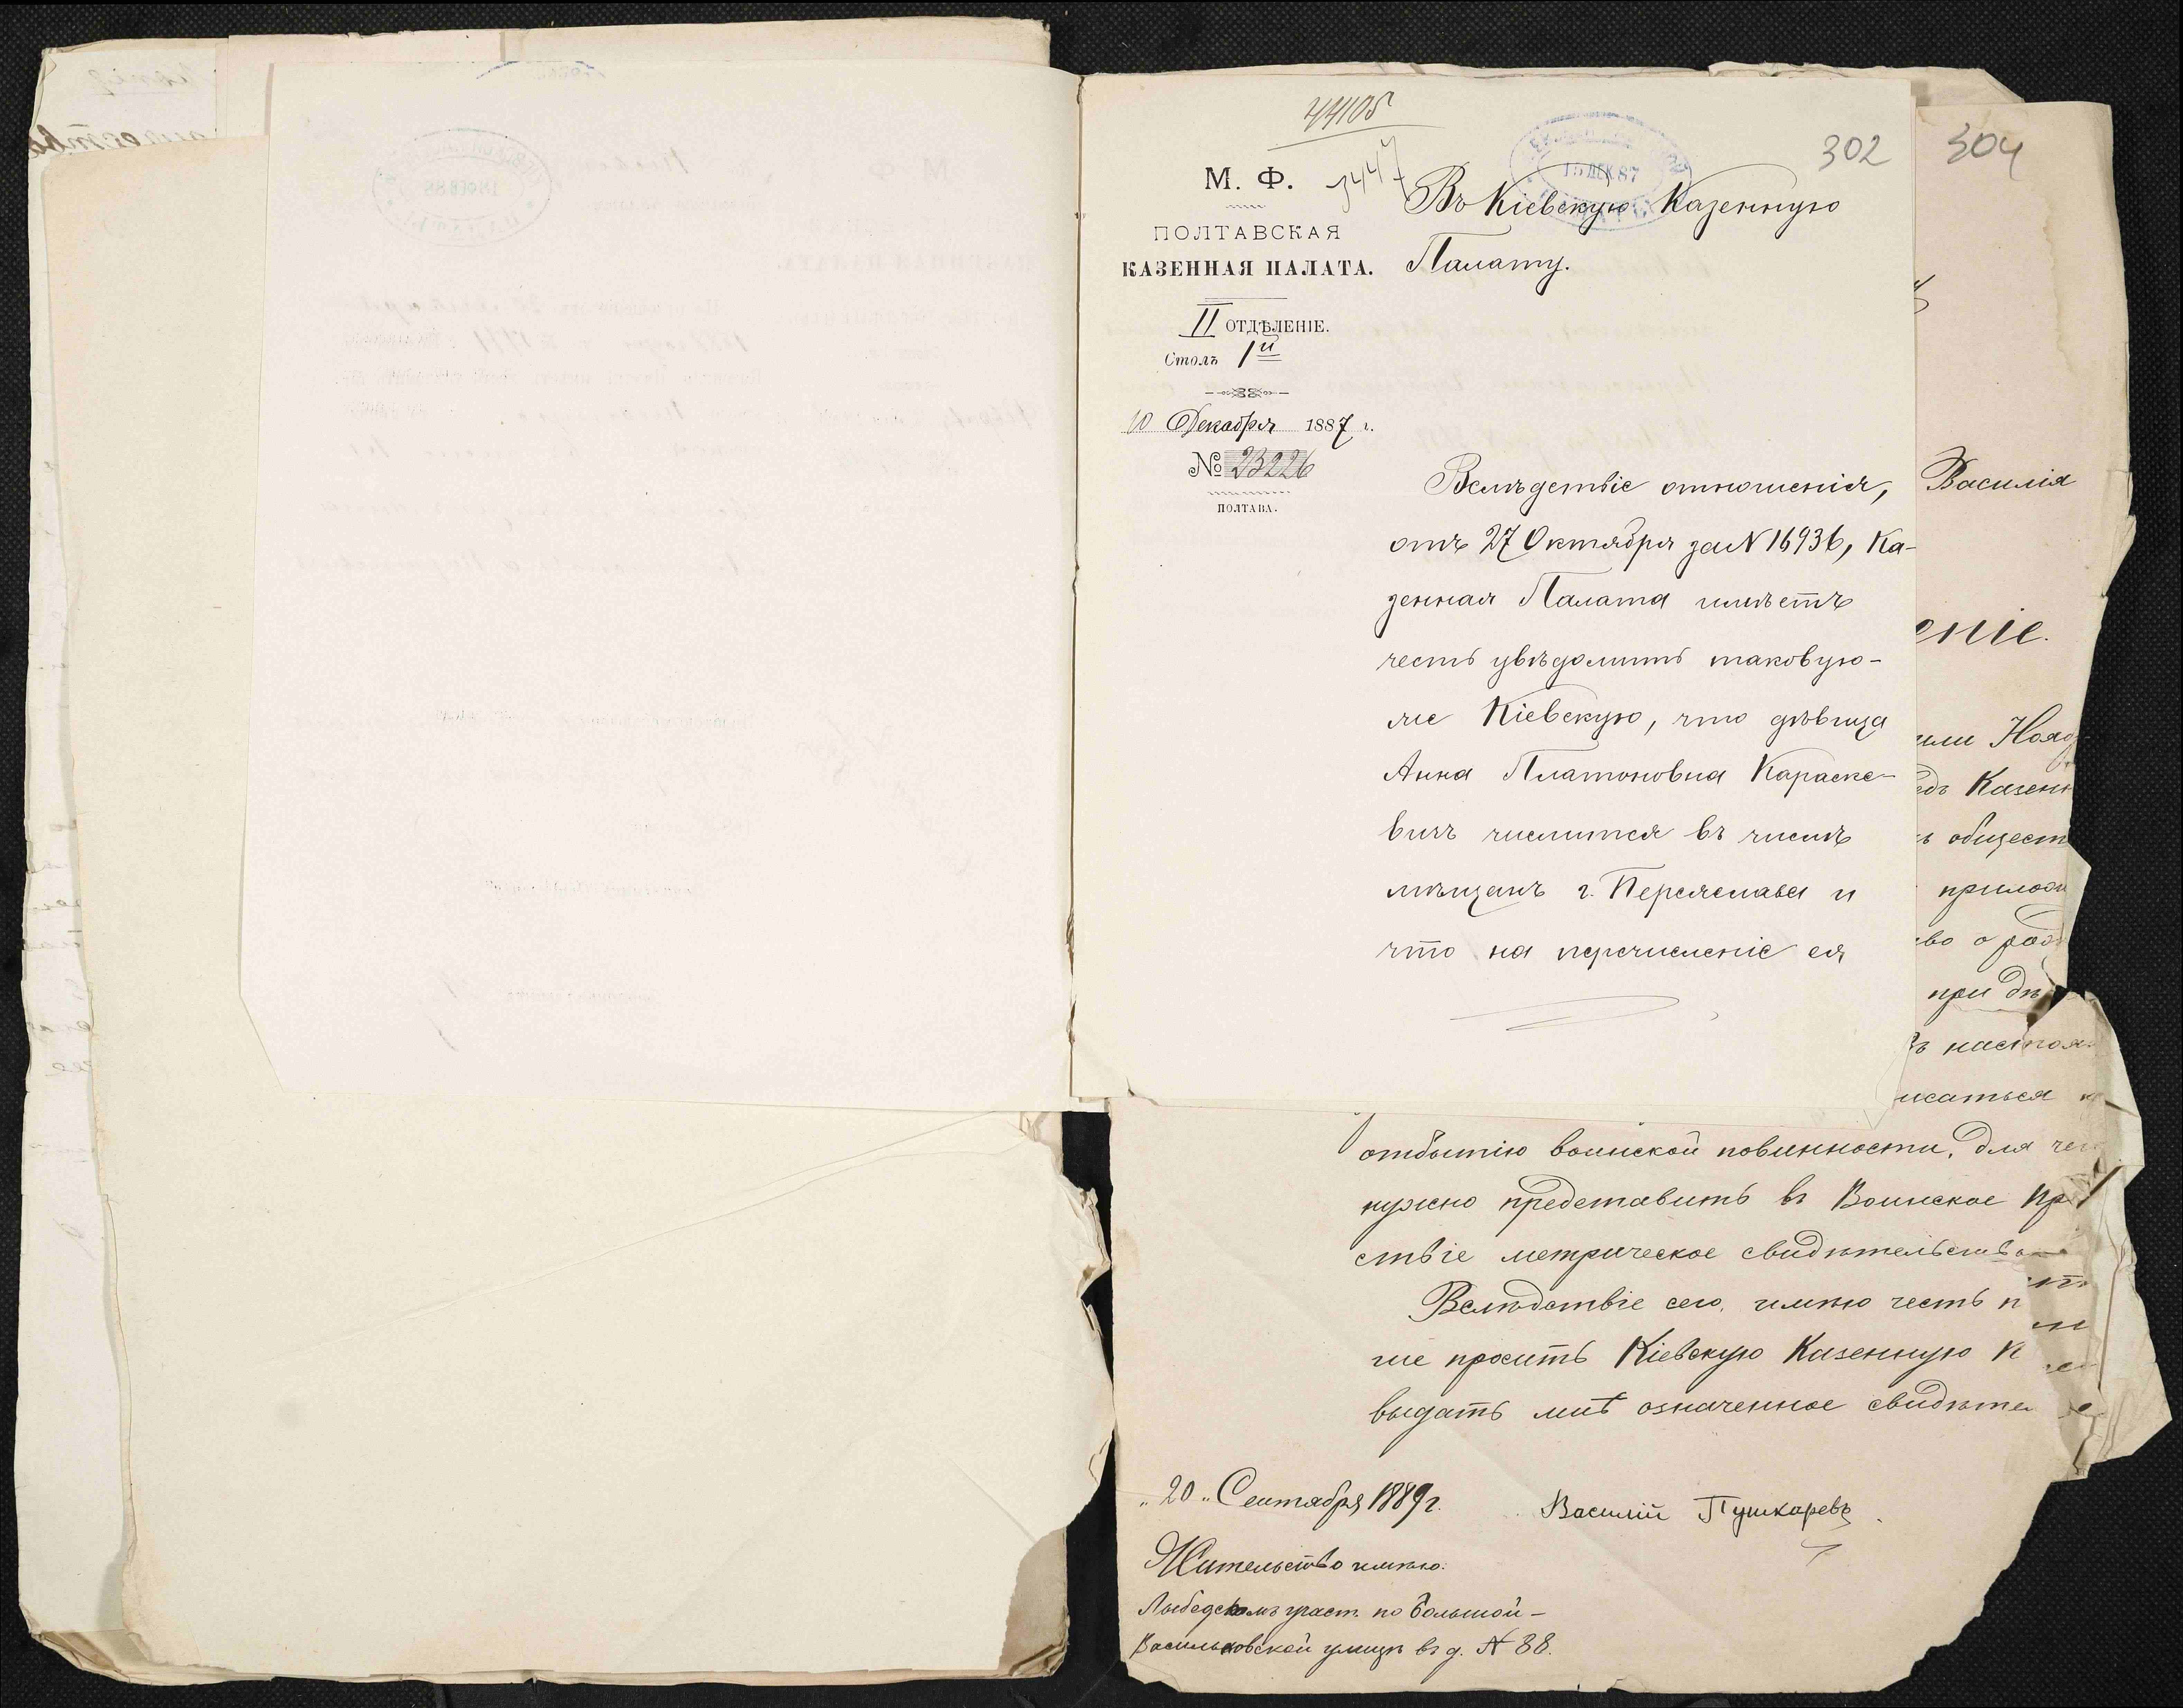 44105
3447
302
М. Ф.
ПОЛТАВСКАЯ
КАЗЕННАЯ ПАЛАТА.
II ОТДѢЛЕНІЕ.
Столъ 1й
10 Декабря 1887 г.
№ 23226
ПОЛТАВА.
15 ДЕК 87
Въ Кіевскую Казенную
Палату.
Вслѣдствіе отношенія,
отъ 27 Октября за N 16936, Ка-
зенная Палата имѣетъ
честь увѣдомить таковую-
же Кіевскую, что дѣвица
Анна Платоновна Караске-
вичъ числится въ числѣ
мѣщанъ г. Переяслава и
что на перечисленіе ея
304
Василія
еніе.
или Нояб
Казенн
общест
прилож
во о рож
при дѣ
настоя
исаться
отбытію воинской повинности, для чег
нужно представить въ Воинское Пр
ствіе метрическое свидѣтельство
Вслѣдствіе сего, имѣю честь п
ше просить Кіевскую Казенную П
выдать мнѣ означенное свидѣте
"20" Сентября 1889 г.
Василій Пушкаревъ
Жительство имѣю.
Лыбедскомъ участ. по Большой-
Васильковской улицѣ въ д. N 88.